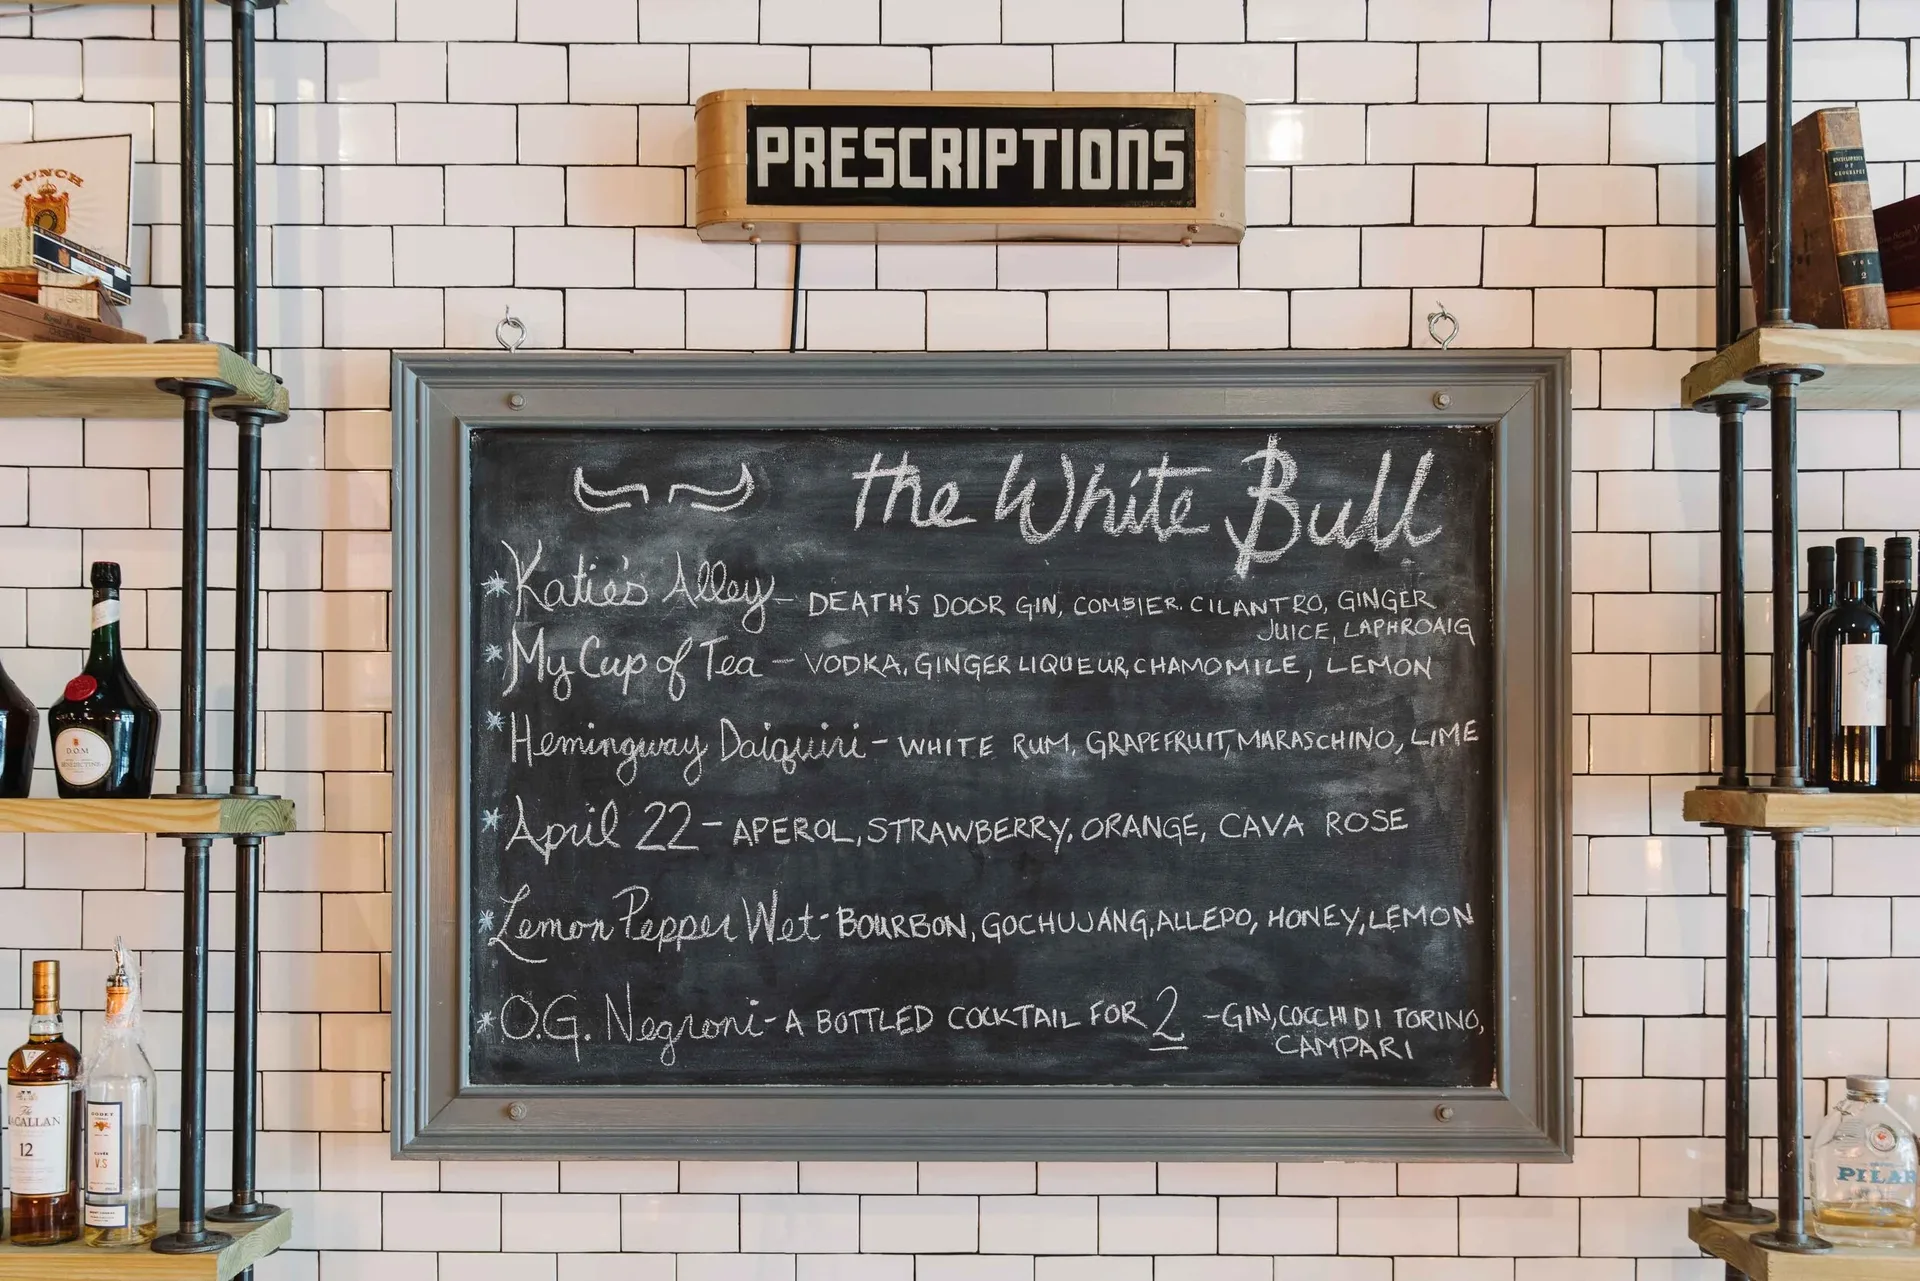 PRESCRIPTIONS
PUNCH
ENCYCLOPEDIA
OF
GEOGRAPHY
VOL
2
the White Bull
*Katie's Alley - DEATH'S DOOR GIN, COMBIER, CILANTRO, GINGER
JUICE, LAPHROAIG
*My Cup of Tea - VODKA, GINGER LIQUEUR, CHAMOMILE, LEMON
*Hemingway Daiquiri - WHITE RUM, GRAPEFRUIT, MARASCHINO, LIME
*April 22 - APEROL, STRAWBERRY, ORANGE, CAVA ROSE
*Lemon Pepper Wet - BOURBON, GOCHUJANG, ALLEPO, HONEY, LEMON
*O.G. Negroni - A BOTTLED COCKTAIL FOR 2 - GIN, COCCHI DI TORINO,
CAMPARI
D.O.M
BENEDICTINE
The
MACALLAN
12
V.S
PILAR